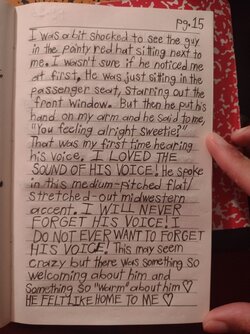 pg.15
I was a bit shocked to see the guy
in the pointy red hat sitting next to
me. I wasn't sure if he noticed me
at first. He was just sitting in the
passenger seat, starring out the
front window. But then he put his
hand on my arm and he said to me,
"You feeling alright sweetie?"
That was my first time hearing
his voice. I LOVED THE
SOUND OF HIS VOICE! He spoke
in this medium-pitched flat/
stretched-out midwestern
accent. I WILL NEVER
FORGET HIS VOICE! I
DO NOT EVER WANT TO FORGET
HIS VOICE! This may seem
crazy but there was something so
welcoming about him and
something so "warm" about him ♡
HE FELT LIKE HOME TO ME ♡